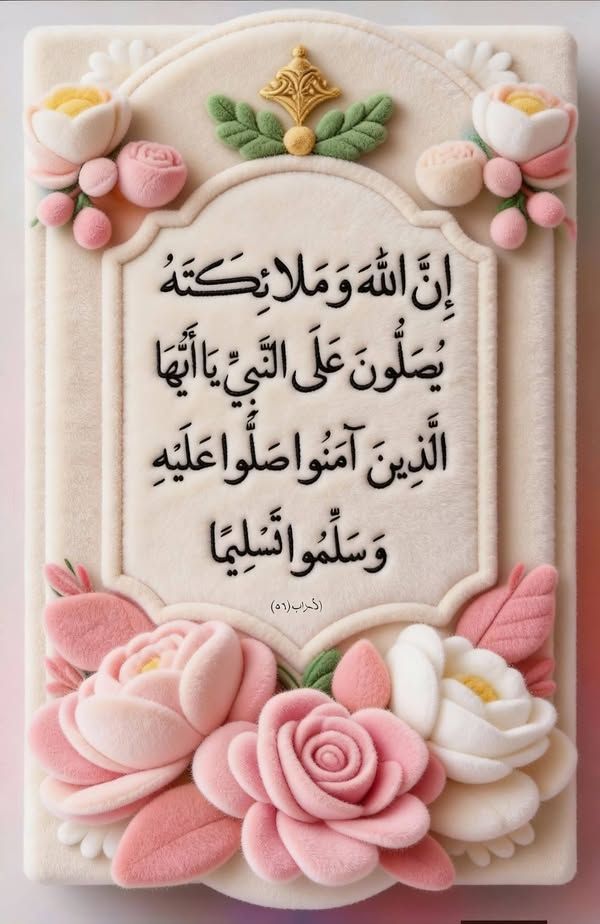 إِنَّ اللَّهَ وَمَلَائِكَتَهُ
يُصَلُّونَ عَلَى النَّبِيِّ يَا أَيُّهَا
الَّذِينَ آمَنُوا صَلُّوا عَلَيْهِ
وَسَلِّمُوا تَسْلِيمًا
(الأحزاب (٥٦